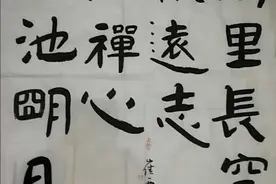 里長空
遠志
崔
池朙月
禪心